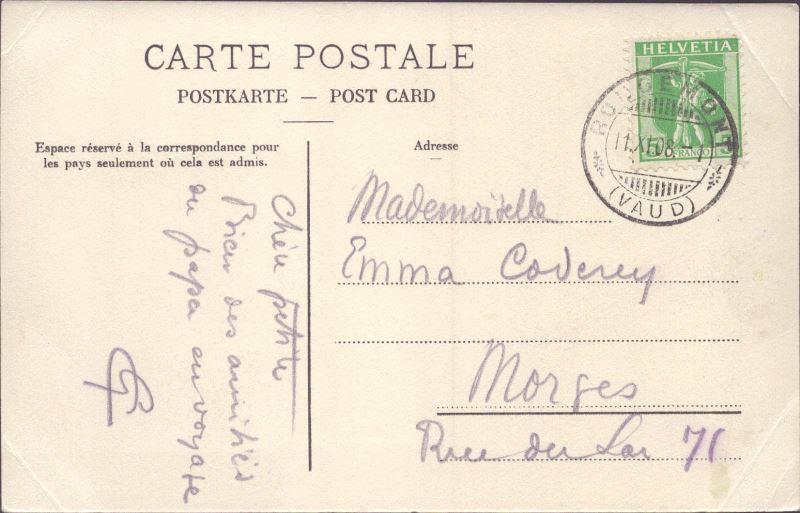 CARTE POSTALE
POSTKARTE — POST CARD
Espace réservé à la correspondance pour
les pays seulement où cela est admis.
Adresse
HELVETIA
FRANCO
ROUGEMONT
11.XI.08.
(VAUD)
Mademoiselle
Emma Coderey
Morges
Rue du Lac 71
Chère petite
Bien des amitiés
du papa en voyage